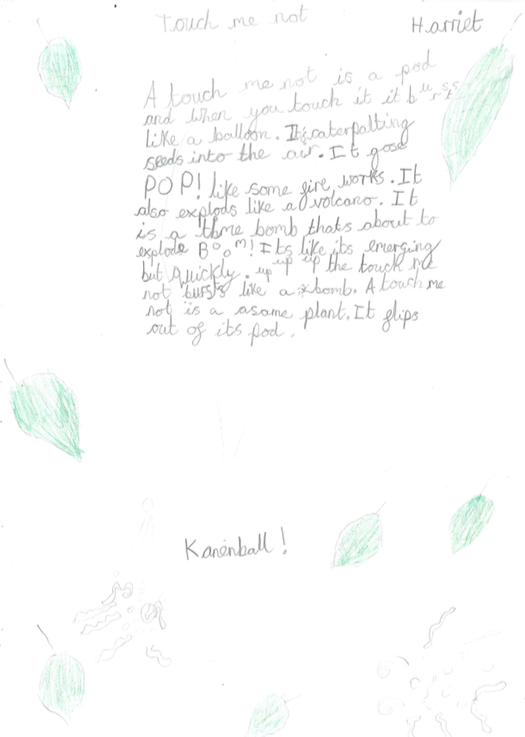 Touch me not
Harriet
A touch me not is a pod
and when you touch it it bursts
like a balloon. Its caterpalting
seeds into the air. It gose
POP! like some fire works. It
also explods like a volcano. It
is a time bomb thats about to
explode Boom! Its like its emerging
but Quickly. up up up the touch me
not bursts like a bomb. A touch me
not is a asome plant. It flips
out of its pod.
Kanenball!